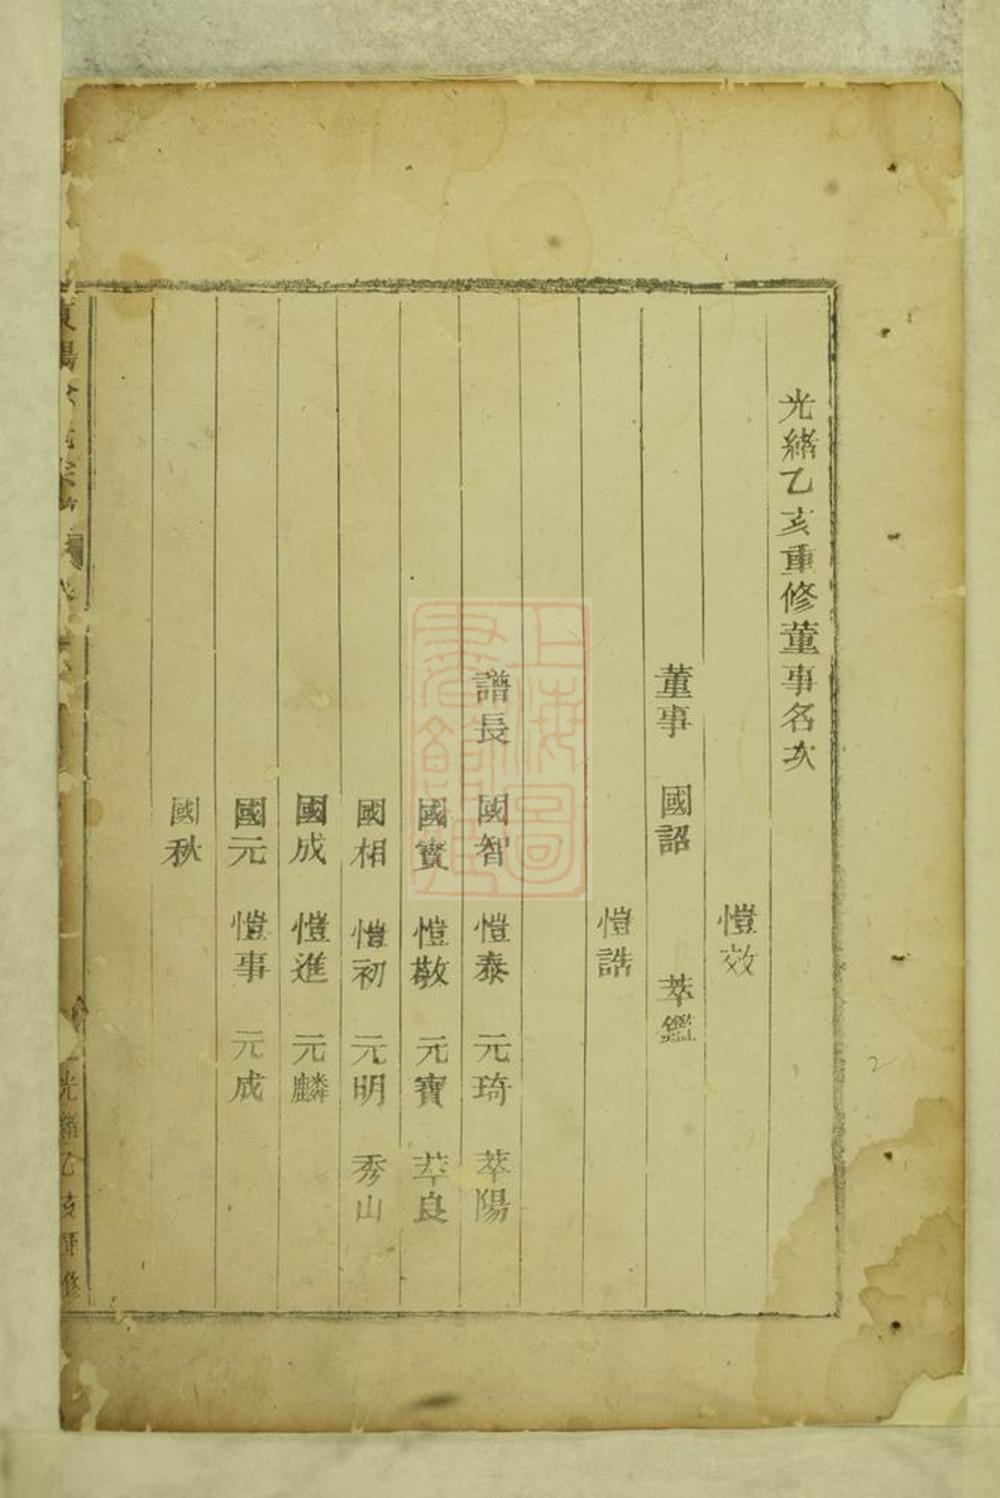 光緒乙亥重修董事名次
愷效
董事 國詔 萃鑑
愷誥
譜長 國智 愷泰 元琦 萃陽
國寳 愷敬 元寶 萃良
國相 愷初 元明 秀山
國成 愷進 元麟
國元 愷事 元成
國秋
光緒乙亥重修
上海圖書館藏